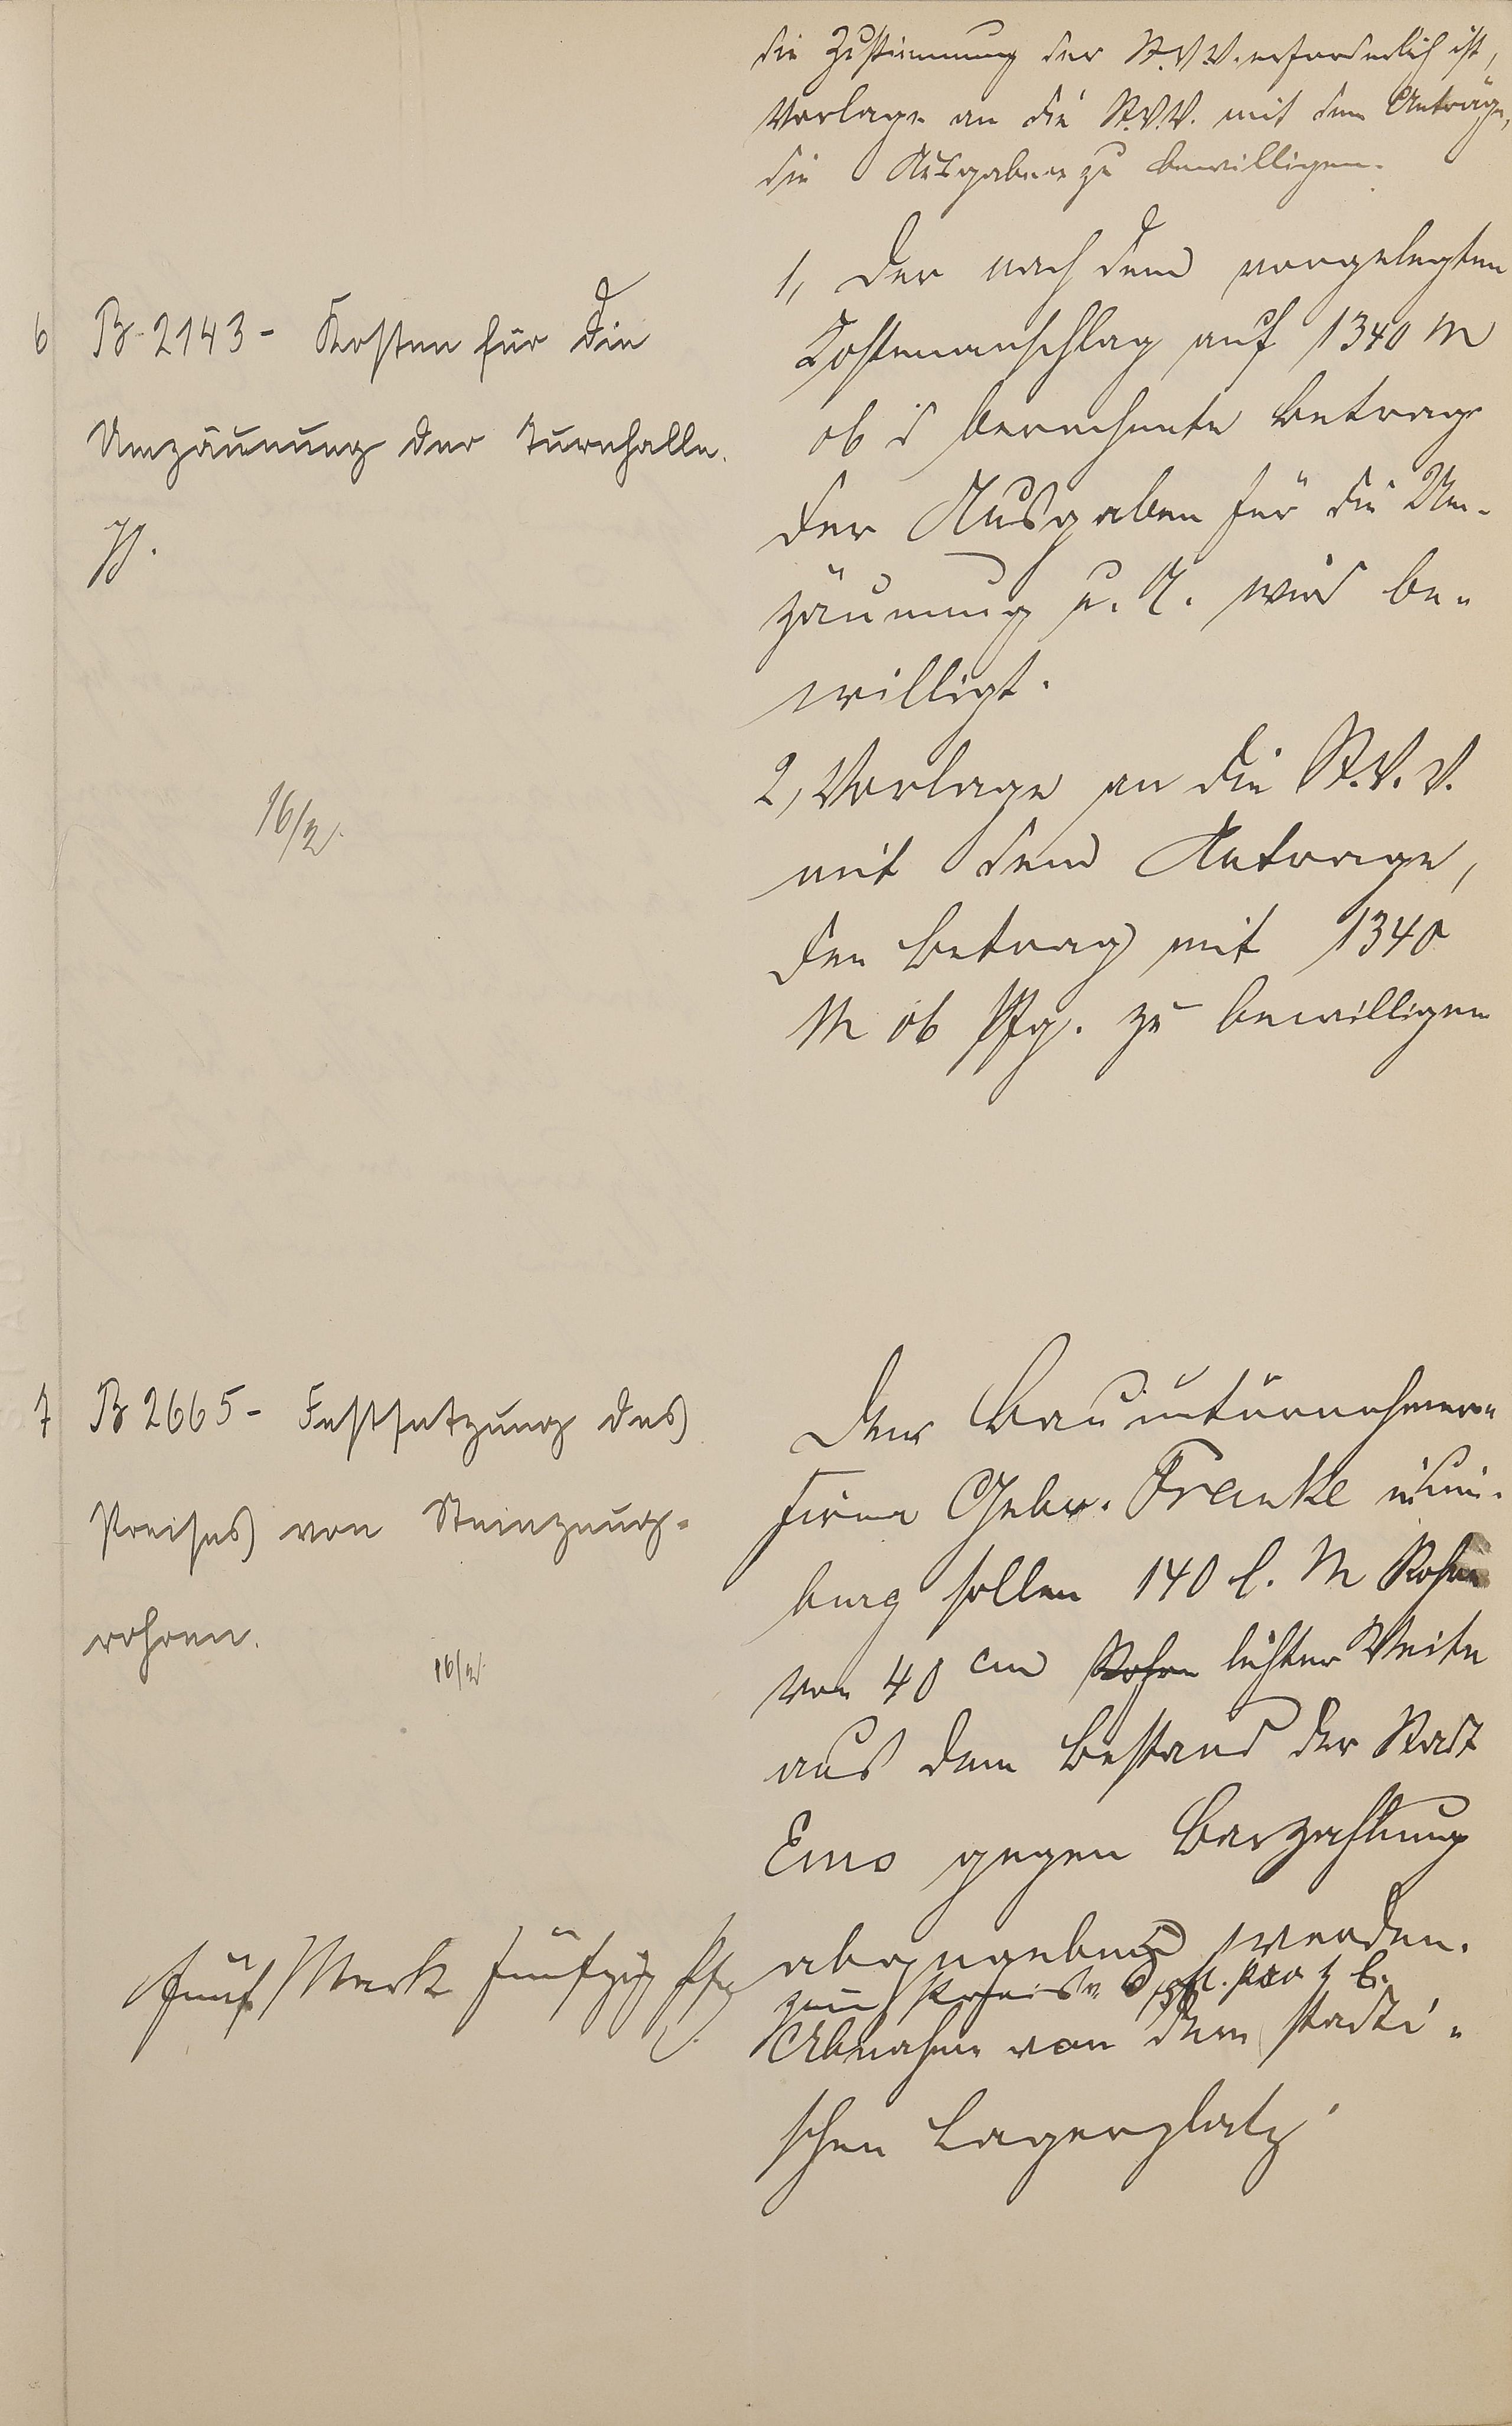 die Zustimmung der St.V.V. erforderlich ist,
Vorlage an die St.V.V. mit dem Antrage,
die Ausgaben zu bewilligen.
6 B-2143- Kosten für die
Umzäunung der Turnhalle.
16/2.
1, Der nach dem vorgelegten
Kostenanschlag auf 1340 M
06 berechnete Betrag
der Ausgaben für die Um-
zäunung wird be-
willigt.
2, Vorlage an die St.V.V.
mit dem Antrage,
den Betrag mit 1340
M 06 Pfg. zu bewilligen
7 B 2665- Festsetzung des
Preises von Steinzeug-
rohren.
16/2
Der Bauunternehmer-
firma Gebr. Franke
burg sollen 140 l. M Rohre
von 40 cm Rohre lichter Weite
aus dem Bestand der Stadt
Ems gegen Barzahlung
abgegeben werden.
zum Preise
fünf Mark fünfzig Pfg
Abnahme von dem städti-
schen Lagerplatz.